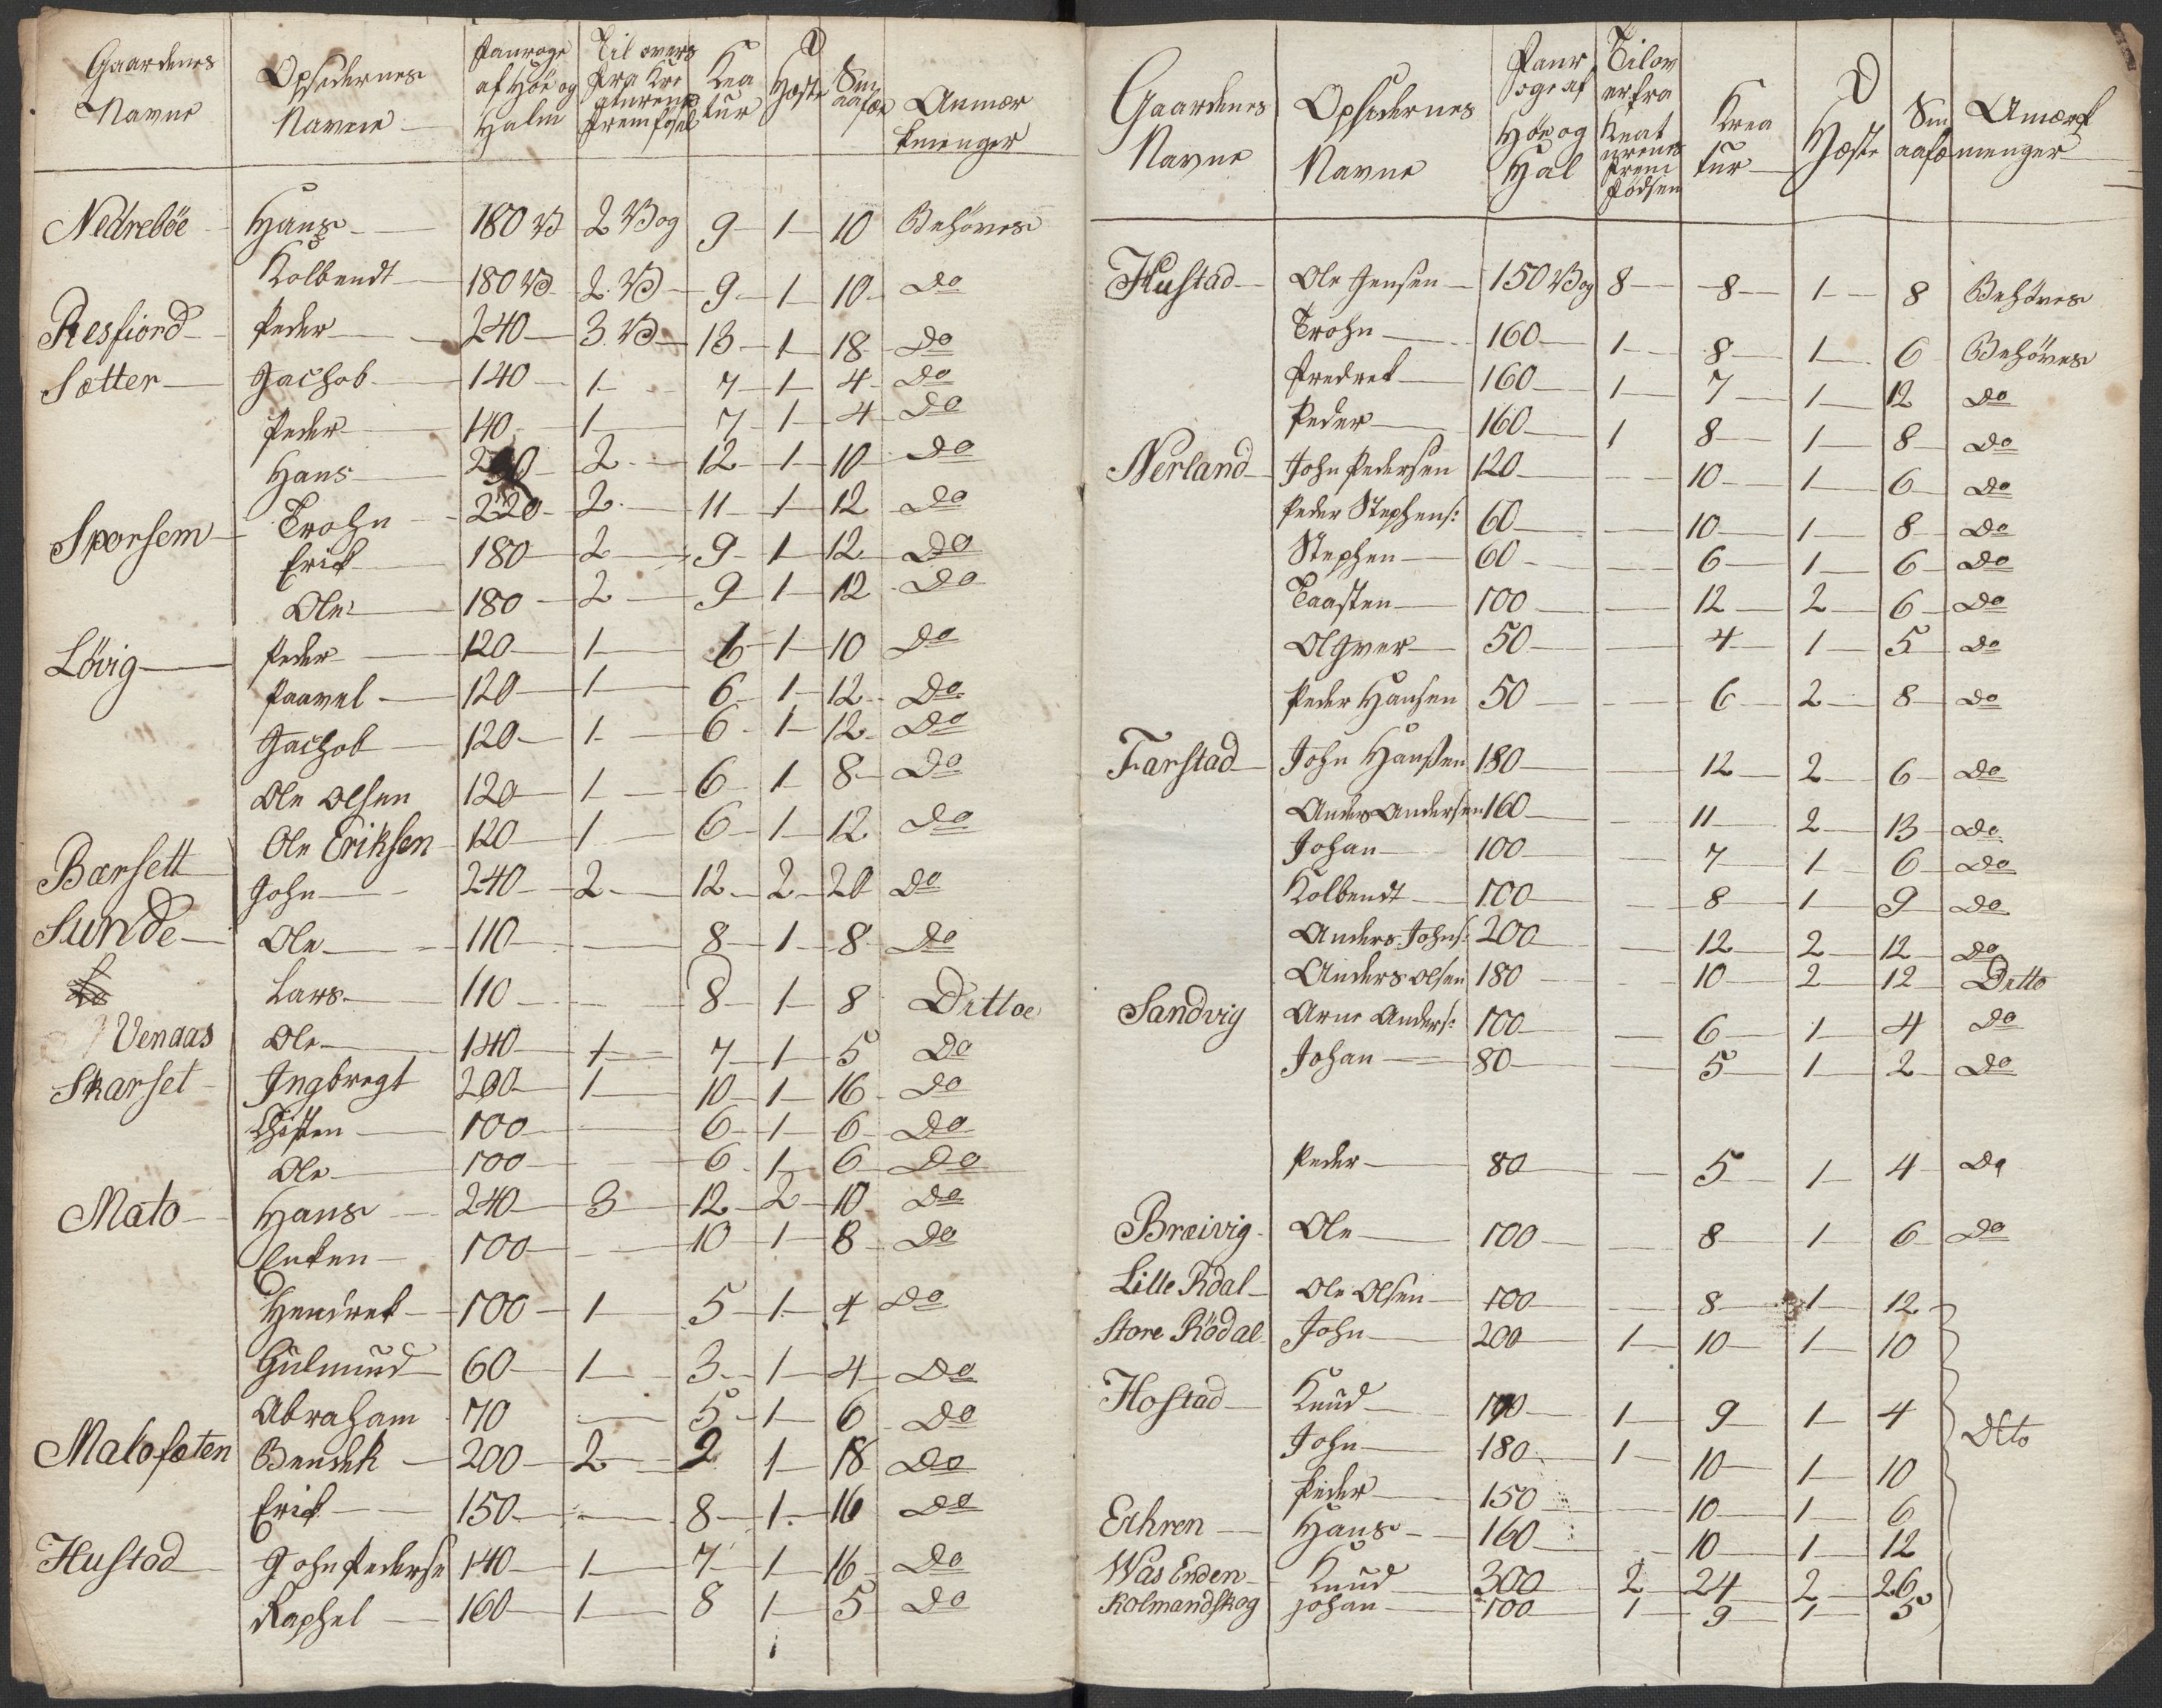 Gaardenes Navne | Opsidernes Navne | Paaroge af Höe og Halm | Til overs fra Kreaturenes Fremfosel | Kreatur | Hæste | Smaafæe | Anmærkninger
Nedrebóe | Hans | 180 V | 2 Vog | 9 | 1 | 10 | Behöves
Kolbendt | 180 V | 2 V | 9 | 1 | 10 | Do
Resfiord | Peder | 240 | 3 V | 13 | 1 | 18 | Do
Sætter | Jachob | 140 | 1 | 7 | 1 | 4 | Do
Peder | 140 | 1 | 7 | 1 | 4 | Do
Hans | 2 | 12 | 1 | 10 | Do
Sporsem | Trohn | 220 | 2 | 11 | 1 | 12 | Do
Erick | 180 | 2 | 9 | 1 | 12 | Do
Ole | 180 | 2 | 9 | 1 | 12 | Do
Lövig | Peder | 120 | 1 | 6 | 1 | 10 | Do
Paavel | 120 | 1 | 6 | 1 | 12 | Do
Jachob | 120 | 1 | 6 | 1 | 12 | Do
Ole Olsen | 120 | 1 | 6 | 1 | 8 | Do
Ole Eriksen | 120 | 1 | 6 | 1 | 12 | Do
Bærsett | John | 240 | 2 | 12 | 2 | 20 | Do
Sunde | Ole | 110 | 8 | 1 | 8 | Do
Lars | 110 | 8 | 1 | 8 | Dittoe
Venaas | Ole | 140 | 1 | 7 | 1 | 5 | Do
Skarset | Ingbregt | 200 | 1 | 10 | 1 | 16 | Do
100 | 6 | 1 | 6 | Do
Ole | 100 | 6 | 1 | 6 | Do
Malo | Hans | 240 | 3 | 12 | 2 | 10 | Do
Enken | 100 | 10 | 1 | 8 | Do
Hendrek | 100 | 1 | 5 | 1 | 4 | Do
Gulmund | 60 | 1 | 3 | 1 | 4 | Do
Abraham | 70 | 5 | 1 | 6 | Do
Malofæten | Bendek | 200 | 2 | 2 | 1 | 18 | Do
Erick | 150 | 8 | 1 | 16 | Do
Hustad | John Pederse | 140 | 1 | 7 | 1 | 16 | Do
Raphel | 160 | 1 | 8 | 1 | 5 | Do
Gaardenes Navne | Opsidernes Navne | Paaroge af Höe og Hal | Tilover fra Kreaturenes Fremfödsen | Kreatur | Hæste | Smaafæ | Anmærkmenger
Hustad | Ole Jensen | 150 Vog | 8 | 8 | 1 | 8 | Behöves
Trohn | 160 | 1 | 8 | 1 | 6 | Behöves
Fredrek | 160 | 1 | 7 | 1 | 12 | Do
Peder | 160 | 1 | 8 | 1 | 8 | Do
Nerland | John Pedersen | 120 | 10 | 1 | 6 | Do
Peder Stephens: | 60 | 10 | 1 | 8 | Do
Stephen | 60 | 6 | 1 | 6 | Do
Taasten | 100 | 12 | 2 | 6 | Do
Olgver | 50 | 4 | 1 | 5 | Do
Peder Hansen | 50 | 6 | 2 | 8 | Do
Farstad | John Hansen | 180 | 12 | 2 | 6 | Do
Anders Andersen | 160 | 11 | 2 | 13 | Do
Johan | 100 | 7 | 1 | 6 | Do
Kolbendt | 100 | 8 | 1 | 9 | Do
Anders Johns: | 200 | 12 | 2 | 12 | Do
Anders Olsen | 180 | 10 | 2 | 12 | Ditto
Sandvig | Arne Anders: | 100 | 6 | 1 | 4 | Do
Johan | 80 | 5 | 1 | 2 | Do
Peder | 80 | 5 | 1 | 4 | Do
Breivig | Ole | 100 | 8 | 1 | 6 | Do
Lille Rdal | Ole Olsen | 100 | 8 | 1 | 12
Store Rödal | John | 200 | 1 | 10 | 1 | 10
Hostad | Knud | 190 | 1 | 9 | 1 | 4
John | 180 | 1 | 10 | 1 | 10 | Dito
Peder | 150 | 10 | 1 | 6
Erhren | Hans | 160 | 10 | 1 | 12
Was Enden | Knud | 300 | 2 | 24 | 2 | 26
Kolmandskog | Johan | 100 | 1 | 9 | 1 | 5